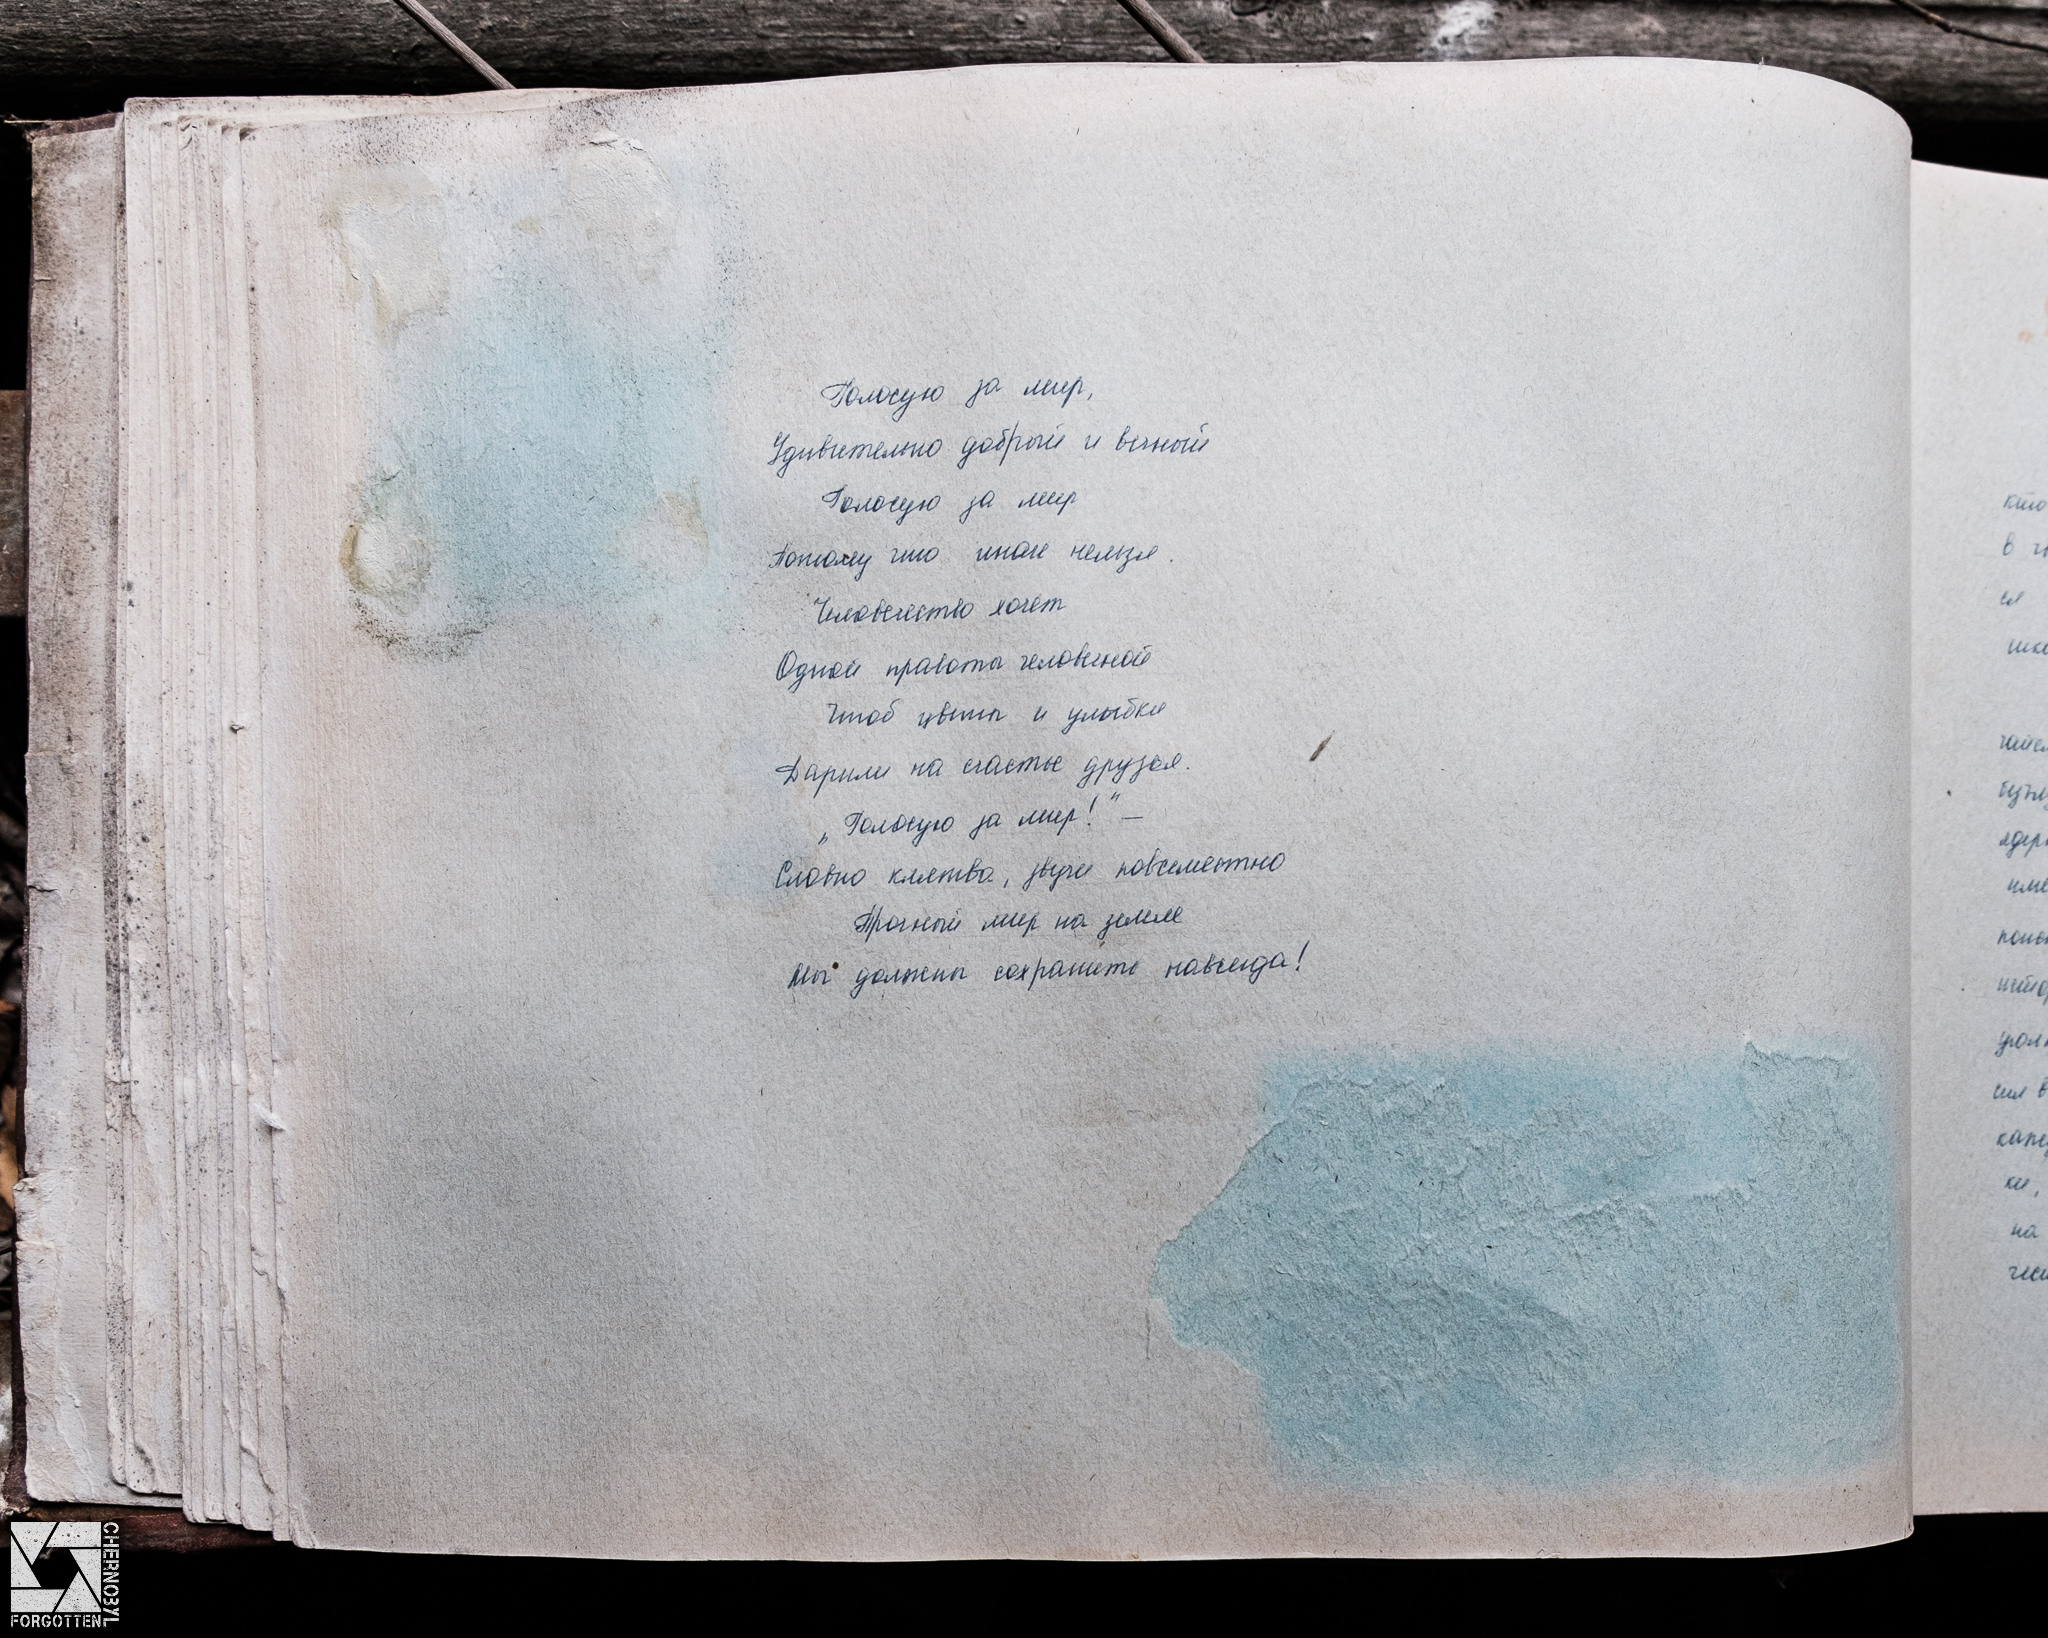 Голосую за мир,
Удивительно добрый и вечный
Голосую за мир
Потому что иначе нельзя.
Человечество хочет
Одной правоты человечной
Чтоб цветы и улыбки
Дарили на счастье друзья.
„Голосую за мир!" —
Словно клятва, звучи повсеместно
Прочный мир на земле
Мы должны сохранить навсегда!
кто
в
ки,
на
CHERNO3YL
FORGOTTEN